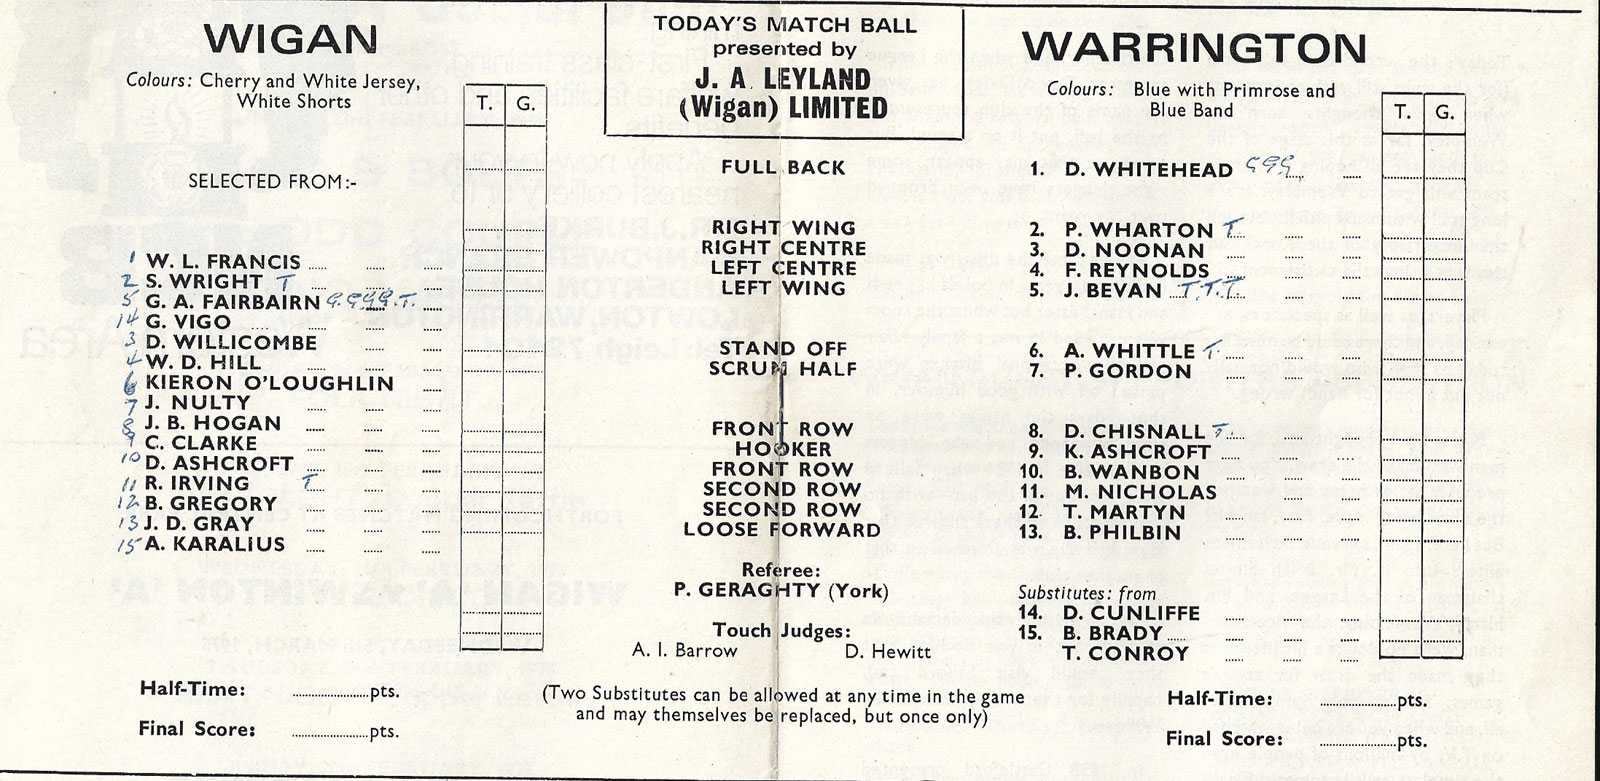 WIGAN
Colours: Cherry and White Jersey,
White Shorts
T. G.
SELECTED FROM:-
1 W. L. FRANCIS
2 S. WRIGHT T
5 G. A. FAIRBAIRN G.G.G.G.T.
14 G. VIGO
3 D. WILLICOMBE
4 W. D. HILL
6 KIERON O'LOUGHLIN
7 J. NULTY
8 J. B. HOGAN
9 C. CLARKE
10 D. ASHCROFT
11 R. IRVING T
12 B. GREGORY
13 J. D. GRAY
15 A. KARALIUS
Half-Time: ..................pts.
Final Score: ..................pts.
TODAY'S MATCH BALL
presented by
J. A. LEYLAND
(Wigan) LIMITED
FULL BACK
RIGHT WING
RIGHT CENTRE
LEFT CENTRE
LEFT WING
STAND OFF
SCRUM HALF
FRONT ROW
HOOKER
FRONT ROW
SECOND ROW
SECOND ROW
LOOSE FORWARD
Referee:
P. GERAGHTY (York)
Touch Judges:
A. I. Barrow D. Hewitt
(Two Substitutes can be allowed at any time in the game
and may themselves be replaced, but once only)
WARRINGTON
Colours: Blue with Primrose and
Blue Band
T. G.
1. D. WHITEHEAD GGG
2. P. WHARTON T
3. D. NOONAN
4. F. REYNOLDS
5. J. BEVAN T.T.T.
6. A. WHITTLE T
7. P. GORDON
8. D. CHISNALL T
9. K. ASHCROFT
10. B. WANBON
11. M. NICHOLAS
12. T. MARTYN
13. B. PHILBIN
Substitutes: from
14. D. CUNLIFFE
15. B. BRADY
T. CONROY
Half-Time: ..................pts.
Final Score: ..................pts.